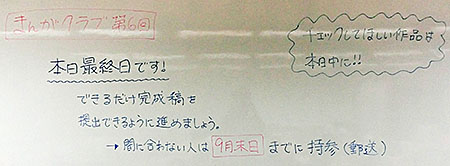 まんがクラブ 第6回
チェックしてほしい作品は
本日中に!!
本日最終日です!
できるだけ完成稿を
提出できるように進めましょう。
→ 間に合わない人は 9月末日 までに 持参(郵送)